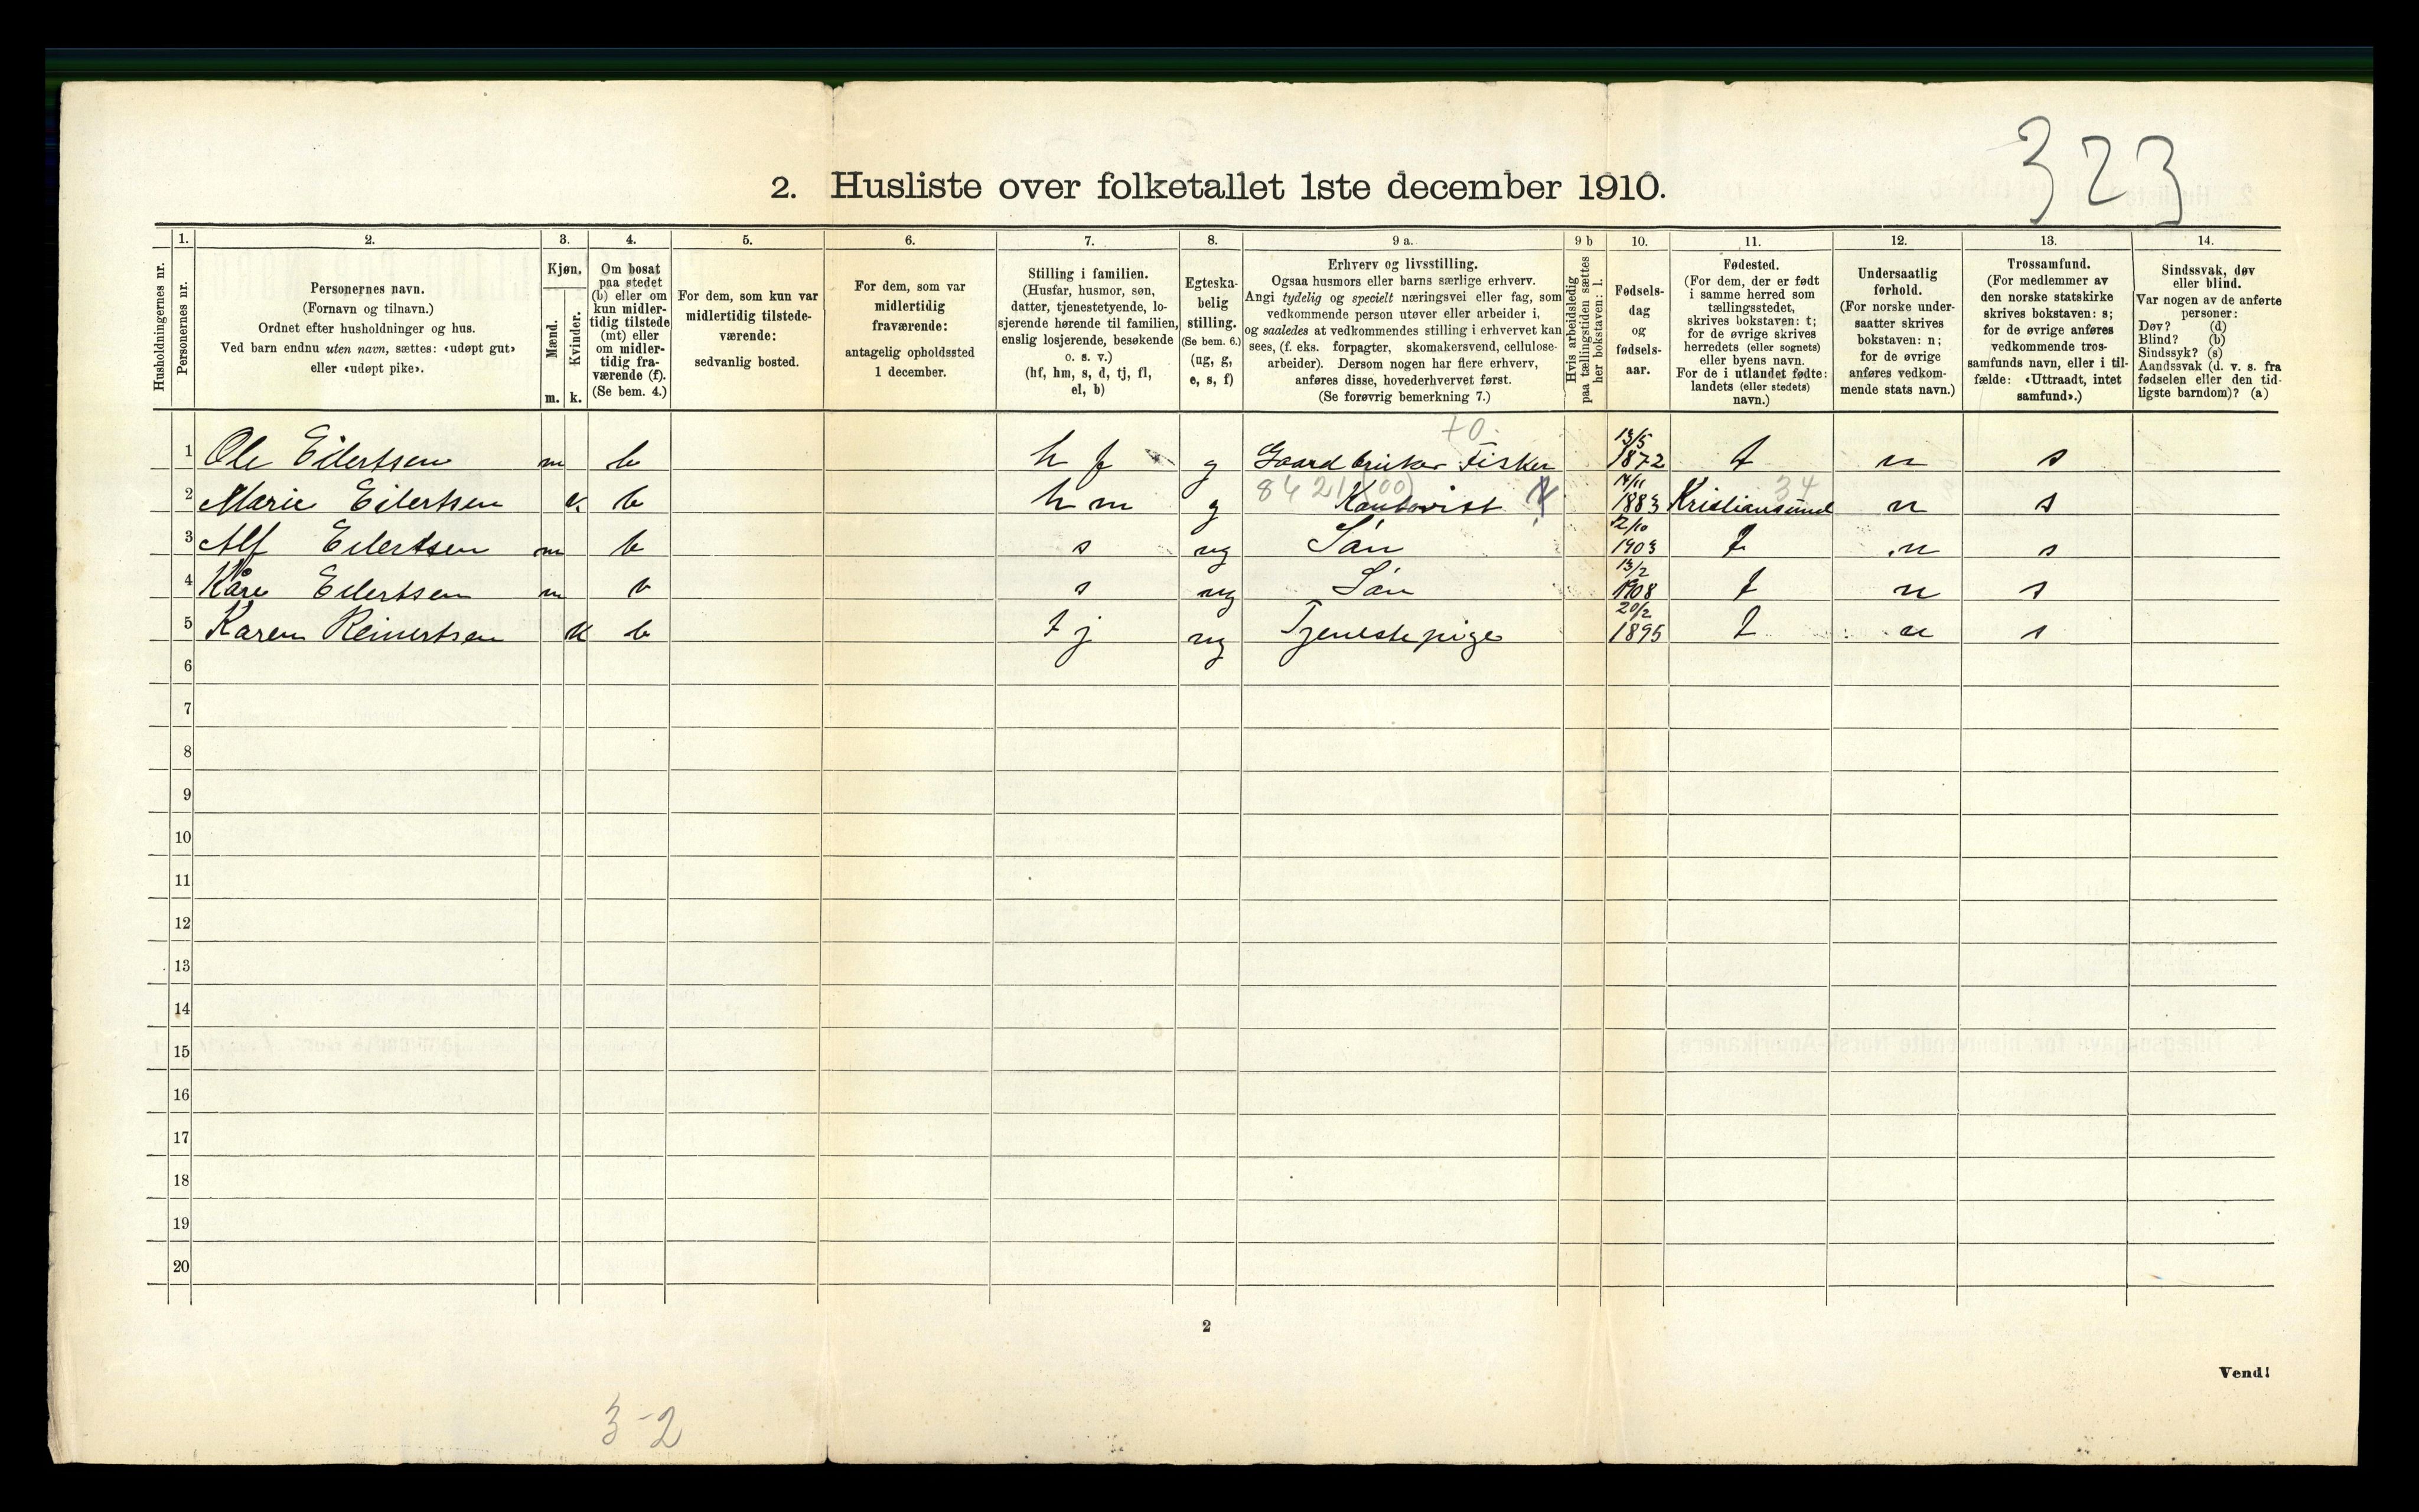 323
2. Husliste over folketallet 1ste december 1910.
Husholdningernes nr.
1.
Personernes nr.
2.
Personernes navn.
(Fornavn og tilnavn.)
Ordnet efter husholdninger og hus.
Ved barn endnu uten navn, sættes: «udøpt gut»
eller «udøpt pike».
3.
Kjøn.
Mænd.
Kvinder.
m. k.
4.
Om bosat
paa stedet
(b) eller om
kun midler-
tidig tilstede
(mt) eller
om midler-
tidig fra-
værende (f).
(Se bem. 4.)
5.
For dem, som kun var
midlertidig tilstede-
værende:
sedvanlig bosted.
6.
For dem, som var
midlertidig
fraværende:
antagelig opholdssted
1 december.
7.
Stilling i familien.
(Husfar, husmor, søn,
datter, tjenestetyende, lo-
sjerende hørende til familien,
enslig losjerende, besøkende
o. s. v.)
(hf, hm, s, d, tj, fl,
el, b)
8.
Egteska-
belig
stilling.
(Se bem. 6.)
(ug, g,
e, s, f)
9 a.
Erhverv og livsstilling.
Ogsaa husmors eller barns særlige erhverv.
Angi tydelig og specielt næringsvei eller fag, som
vedkommende person utøver eller arbeider i,
og saaledes at vedkommendes stilling i erhvervet kan
sees, (f. eks. forpagter, skomakersvend, cellulose-
arbeider). Dersom nogen har flere erhverv,
anføres disse, hovederhvervet først.
(Se forøvrig bemerkning 7.)
9 b
Hvis arbeidsledig
paa tællingstiden sættes
her bokstaven: l.
10.
Fødsels-
dag
og
fødsels-
aar.
11.
Fødested.
(For dem, der er født
i samme herred som
tællingsstedet,
skrives bokstaven: t;
for de øvrige skrives
herredets (eller sognets)
eller byens navn.
For de i utlandet fødte:
landets (eller stedets)
navn.)
12.
Undersaatlig
forhold.
(For norske under-
saatter skrives
bokstaven: n;
for de øvrige
anføres vedkom-
mende stats navn.)
13.
Trossamfund.
(For medlemmer av
den norske statskirke
skrives bokstaven: s;
for de øvrige anføres
vedkommende tros-
samfunds navn, eller i til-
fælde: «Uttraadt, intet
samfund».)
14.
Sindssvak, døv
eller blind.
Var nogen av de anførte
personer:
Døv? (d)
Blind? (b)
Sindssyk? (s)
Aandssvak (d. v. s. fra
fødselen eller den tid-
ligste barndom)? (a)
1 Ole Eilertsen m b hf g Gaardbruker Fisker 13/5 1872 t n s
2 Marie Eilertsen k. b hm g 8421 (00) 14/11 1883 Kristiansund 34 n s
3 Alf Eilertsen m b s ug Søn 1903 t n s
4 Kåre Eilertsen m b s ug Søn 13/2 1908 t n s
5 Karen Reinertsen k b tj ug Tjenestepige 20/2 1895 t n s
6
7
8
9
10
11
12
13
14
15
16
17
18
19
20
2
Vend!
3-2